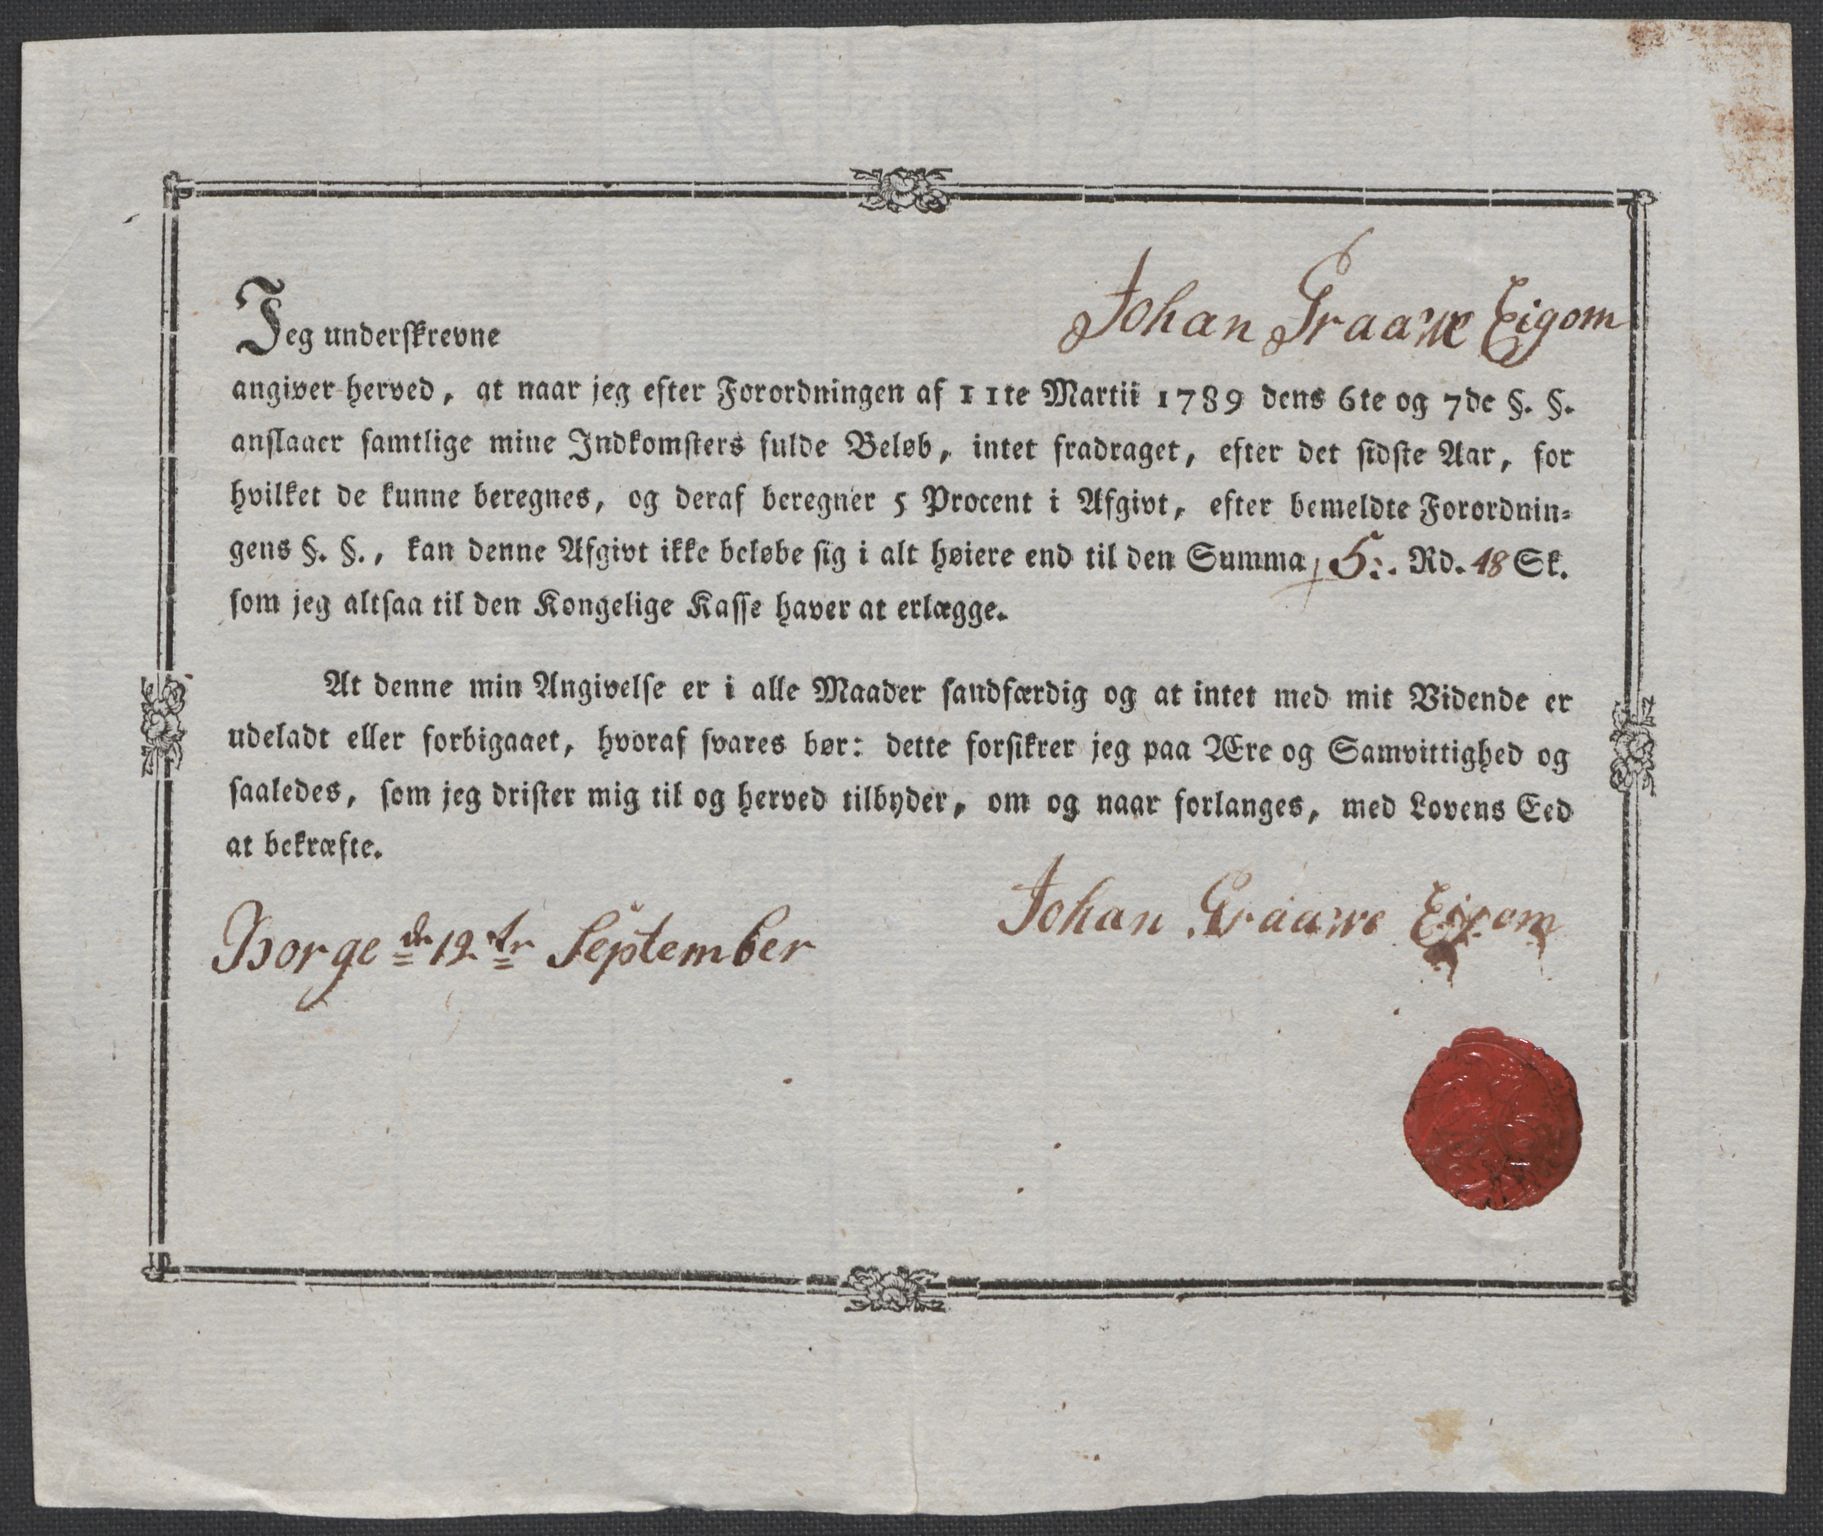 Jeg underskrevne Johan Graawe Eigom
angiver herved, at naar jeg efter Forordningen af 11te Martii 1789 dens 6te og 7de §. §.
anslaaer samtlige mine Indkomsters fulde Beløb, intet fradraget, efter det sidste Aar, for
hvilket de kunne beregnes, og deraf beregner 5 Procent i Afgivt, efter bemeldte Forordnin=
gens §. §., kan denne Afgivt ikke beløbe sig i alt høiere end til den Summa 5:. Rd. 48 Sk.
som jeg altsaa til den Kongelige Kasse haver at erlægge.
At denne min Angivelse er i alle Maader sandfærdig og at intet med mit Vidende er
udeladt eller forbigaaet, hvoraf svares bør: dette forsikrer jeg paa Ære og Samvittighed og
saaledes, som jeg drister mig til og herved tilbyder, om og naar forlanges, med Lovens Eed
at bekræfte.
Johan Graawe Eigom
Borge dn 12te September